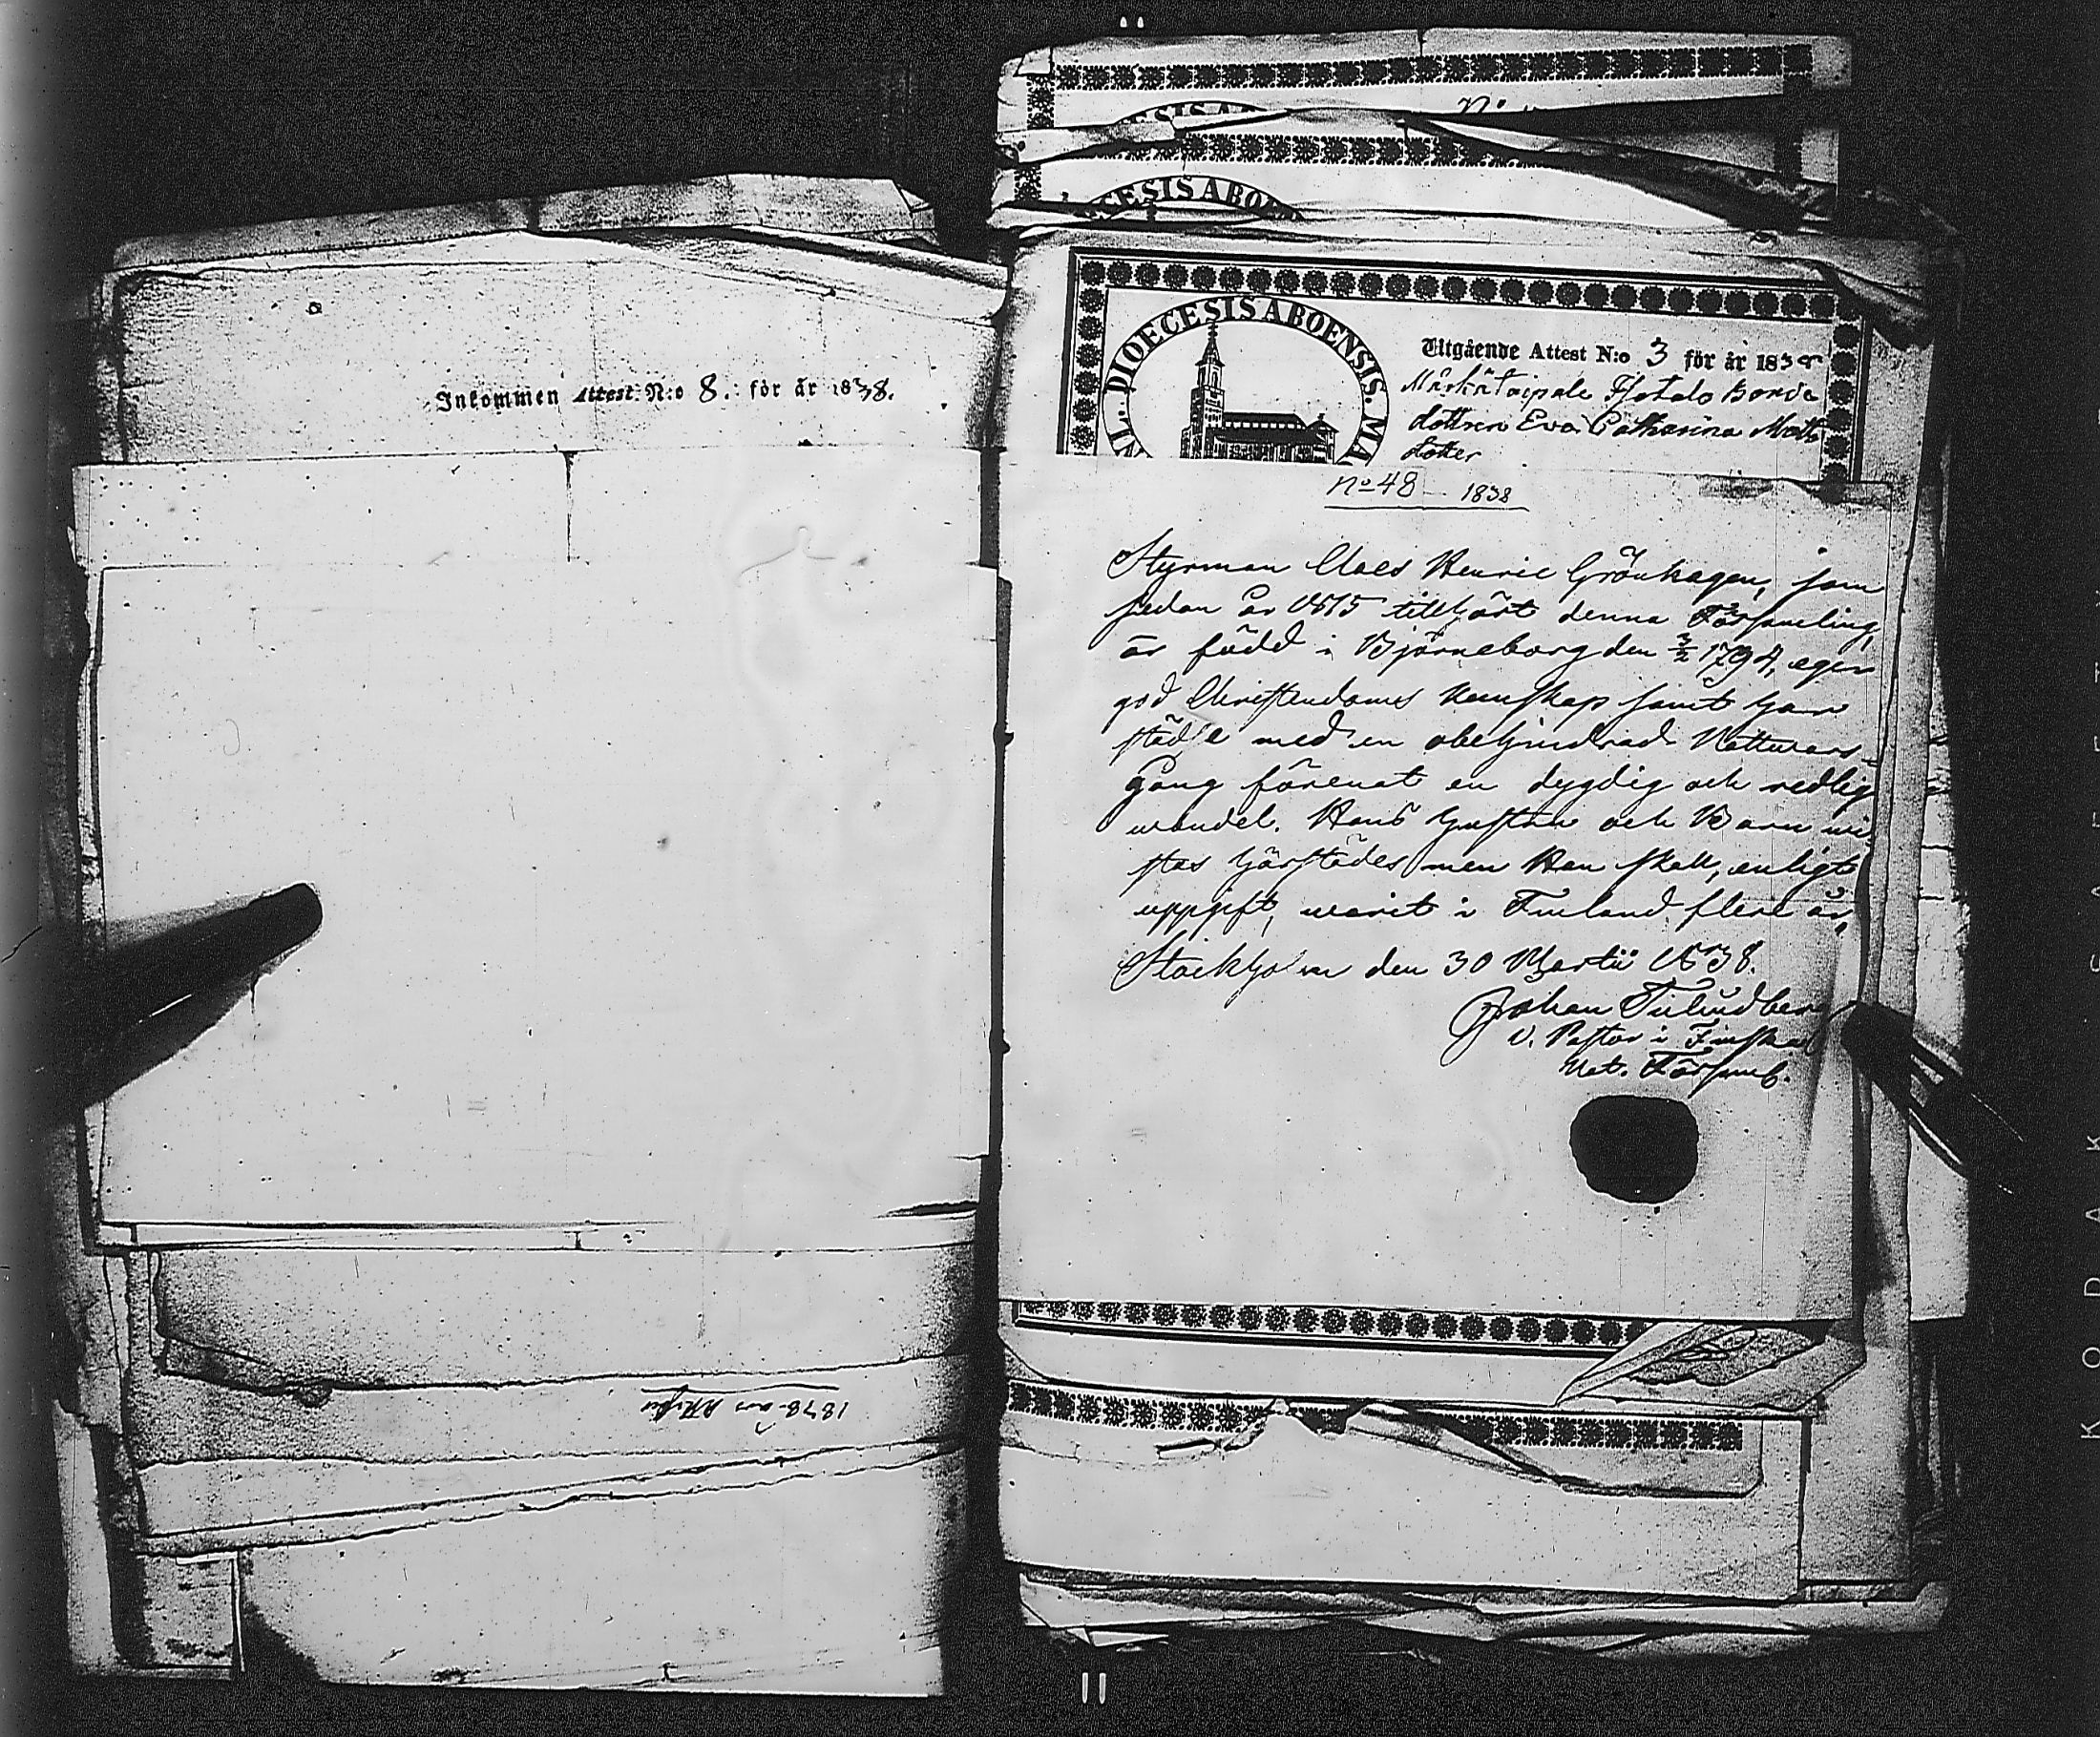 Inkommen Attest N:o 8. för år 1838.
DIOECESIS ABOENSIS. MA
Utgående Attest N:o 3 för år 183
dottren Eva Catharina Matts
dotter
No 48 1838
Styrman Claes Henric Grönhagen, som
sedan år 1815 tillhört denna Församling,
är född i Björneborg den 3/2 1794, eger
god Christendoms kunskap samt har
städse med en obehindrad Nattvards
Gång förenat en dygdig och redlig
wandel. Hans Hustru och Barn wi
stas härstädes men Han skall, enligt
uppgift, warit i Finland flere år,
Stockholm den 30 Martii 1838.
Johan
v. Pastor i Finska
Nat. Församl.
CESIS ABOE
KODAK SAFETY